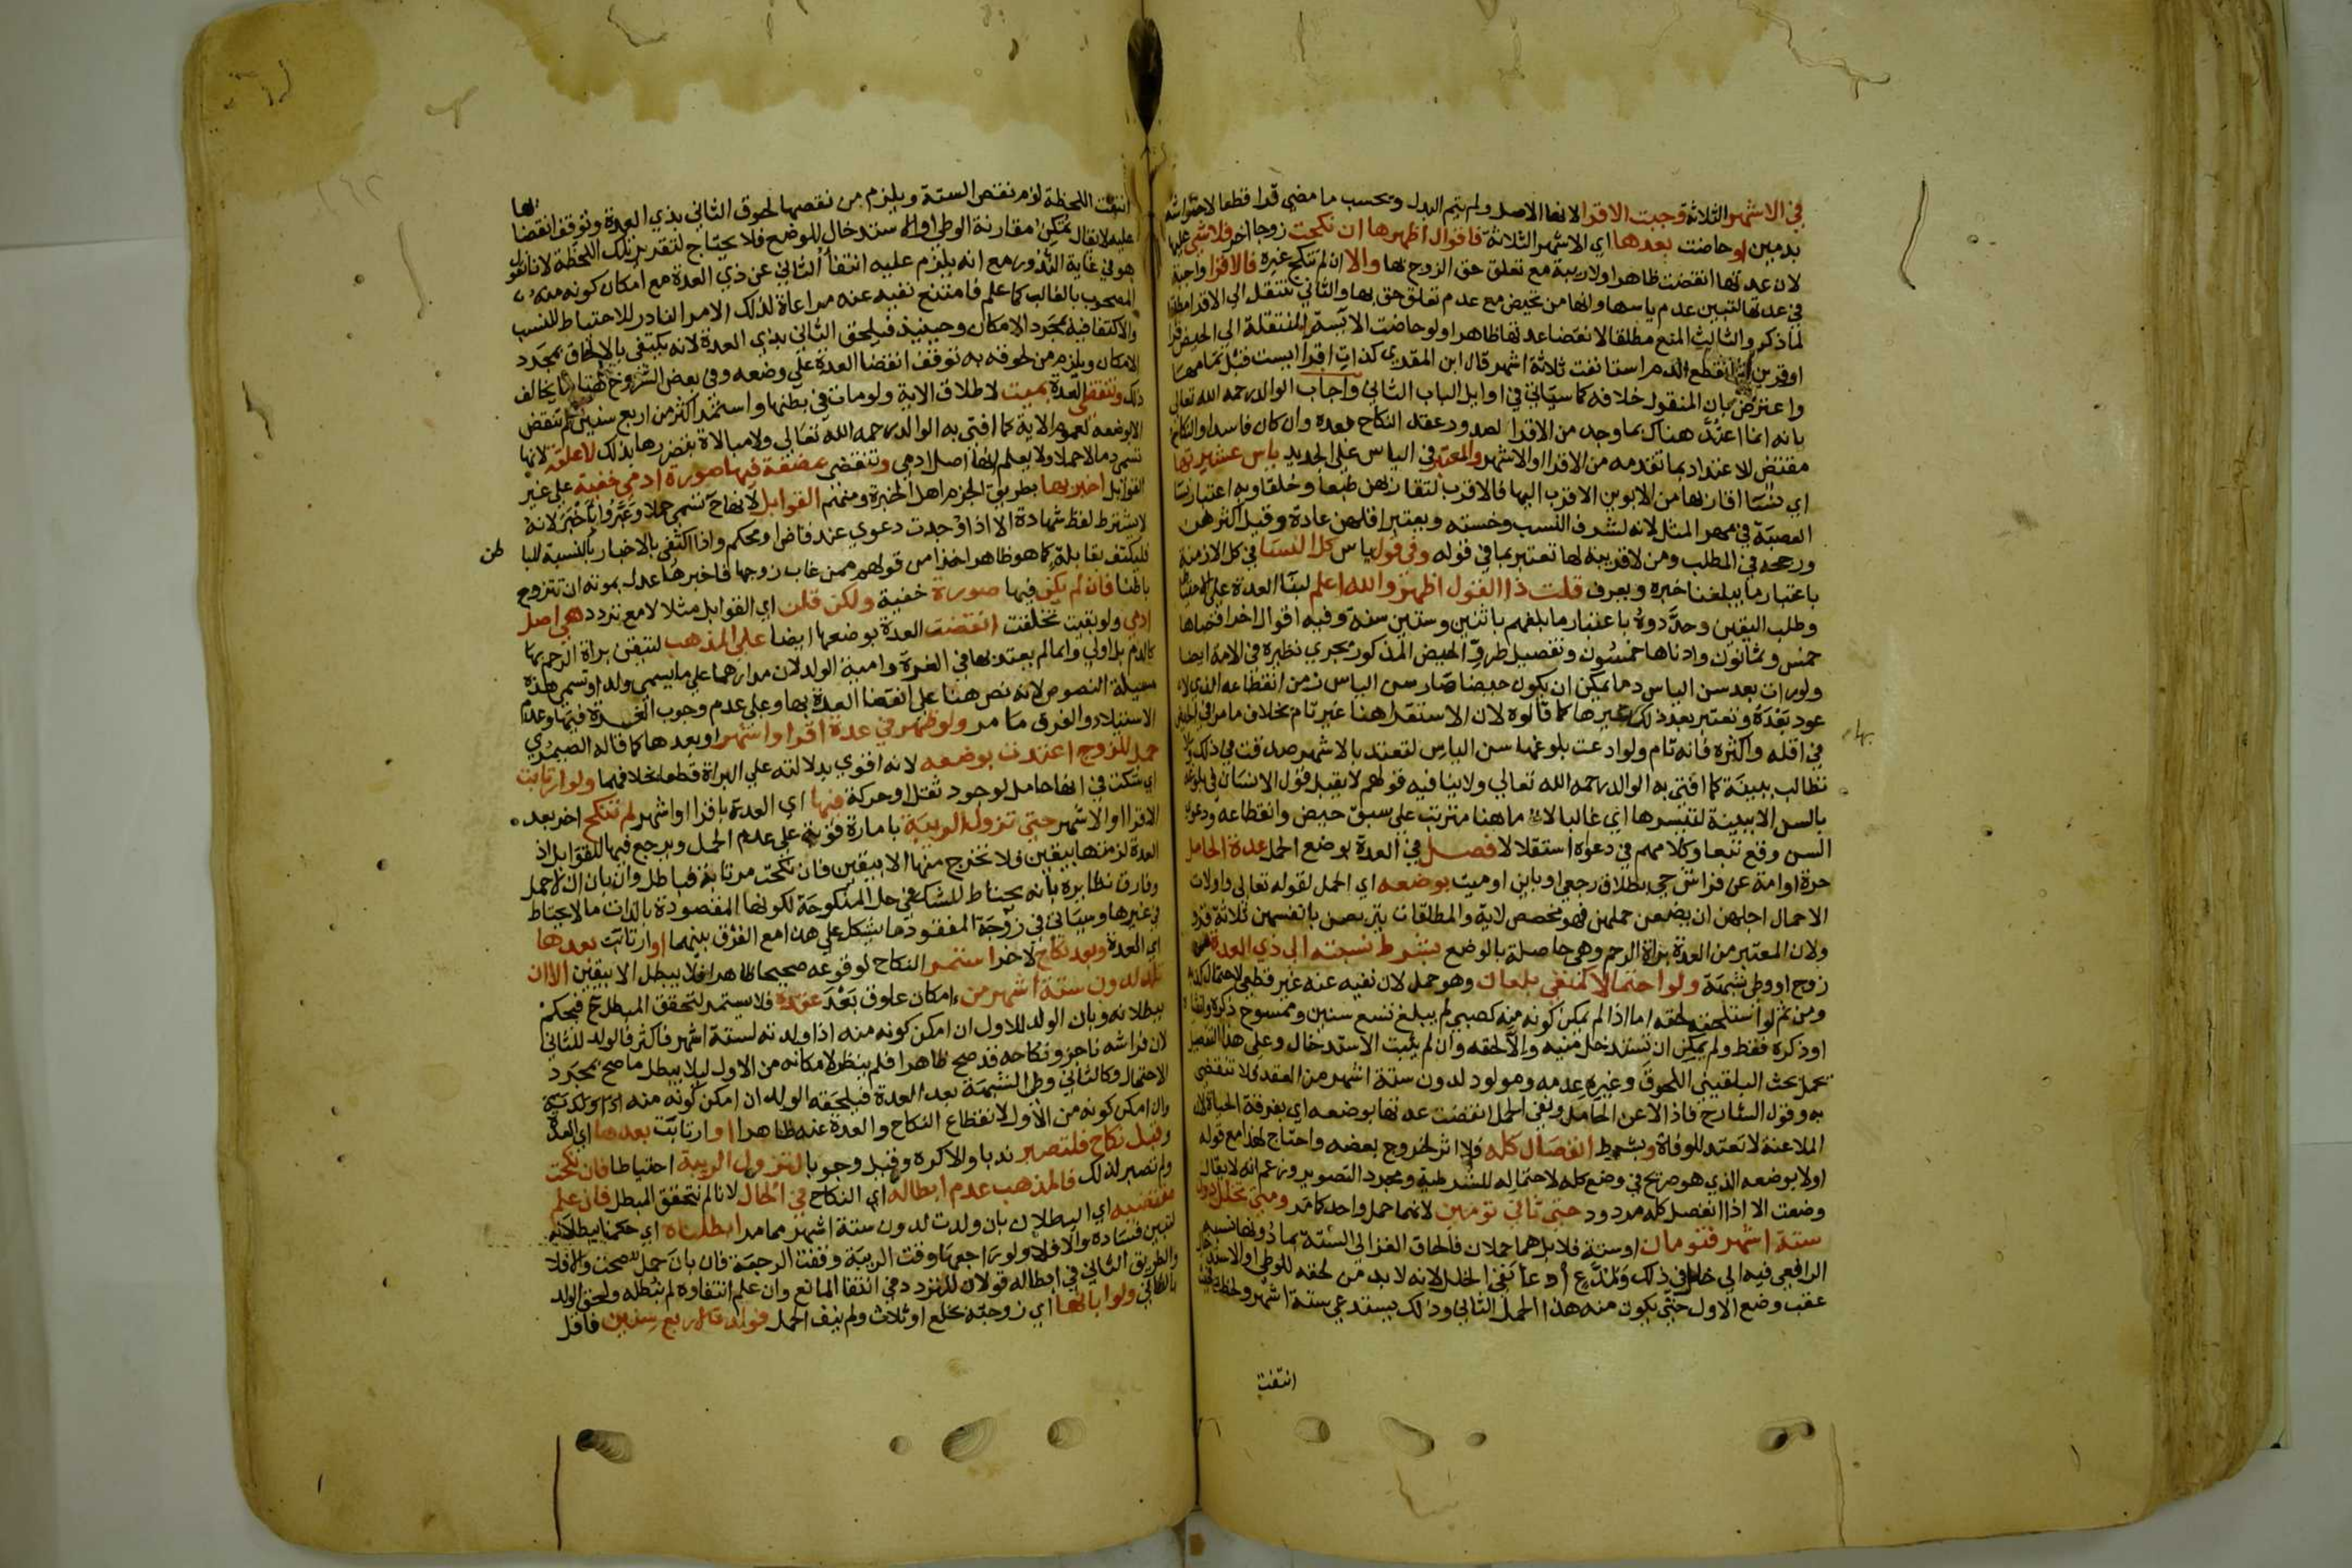 في الاشهر الثلاثة وجبت الاقرا لانها الاصل ولم يتم البدل وتحسب ما مضى قرا قطعا لاحتواشه
بدمين او حاضت بعدها اي الاشهر الثلاثة فاقوال اظهرها ان نكحت زوجا اخر فلا شي عليها
لان عدتها انقضت ظاهرا ولا ريبة مع تعلق حق الزوج بها والا ان لم تنكح غيره فالاقرا واجبة
في عدتها لتبين عدم ياسها وانها من تحيض مع عدم تعلق حق بها والثاني تنتقل الى الاقرا مطلقا
لما ذكر والثالث المنع مطلقا لانقضا عدتها ظاهرا ولو حاضت الآيسة المنتقلة الى الحيض قرا
او قرين ثم انقطع الدم استانفت ثلاثة اشهر قال ابن المقري كذات اقرا ايست قبل تمامها
واعترض بان المنقول خلافه كما سياتي في اوايل الباب الثاني واجاب الوالد رحمه الله تعالى
بانه انما اعتد هناك بما وجد من الاقرا لصدور عقد النكاح بعده وان كان فاسدا والنكاح
مقتض للاعتداد بما تقدمه من الاقرا او الاشهر والمعتبر في الياس على الجديد ياس عشيرتها
اي نسا اقاربها من الابوين الاقرب اليها فالاقرب لتقاربهن طبعا وخلقا وبه اعتبار نسا
العصبة في مهر المثل لانه لشرف النسب وخسته ويعتبر اقلهن عادة وقيل اكثرهن
ورجحه في المطلب ومن لا قريبة لها تعتبر بما في قوله وفي قول ياس كل النسا في كل الازمنة
باعتبار ما يبلغنا خبره ويعرف قلت ذا القول اظهر والله اعلم لبنا العدة على الاحتياط
وطلب اليقين وحددوه باعتبار ما بلغهم باثنين وستين سنة وفيه اقوال اخر اقصاها
خمس وثمانون وادناها خمسون وتفصيل طرق الحيض المذكور يجري نظيره في الامة ايضا
ولو رات بعد سن الياس دما يمكن ان يكون حيضا صار سن الياس زمن انقطاعه الذي لا
عود بعده وتعتبر بعد ذلك غيرها كما قالوه لان الاستقرا هنا غير تام بخلاف ما مر في الحيض
في اقله واكثره فانه تام ولو ادعت بلوغها سن الياس لتعتد بالاشهر صدقت في ذلك ولا
تطالب ببينة كما افتى به الوالد رحمه الله تعالى ولا ينافيه قولهم لا يقبل قول الانسان في بلوغه
بالسن الا ببينة لتيسرها اي غالبا لان ما هنا مترتب على سبق حيض وانقطاعه ودعوى
السن وقع تبعا وكلامهم في دعواه استقلالا فصل في العدة بوضع الحمل عدة الحامل
حرة او امة عن فراق حي بطلاق رجعي او باين او ميت بوضعه اي الحمل لقوله تعالى واولات
الاحمال اجلهن ان يضعن حملهن فهو مخصص لاية والمطلقات يتربصن بانفسهن ثلاثة قرو
ولان المعتبر من العدة براة الرحم وهي حاصلة بالوضع بشرط نسبته الى ذي العدة من
زوج او وطي بشبهة ولو احتمالا كمنفي بلعان وهو حمل لان نفيه عنه غير قطعي لاحتمال كذبه
ومن ثم لو استلحقه لحقه اما اذا لم يمكن كونه منه كصبي لم يبلغ تسع سنين وممسوح ذكره وانثياه
او ذكره فقط ولم يمكن ان تستدخل منيه والا لحقه وان لم يثبت الاستدخال وعلى هذا التفصيل
يحمل بحث البلقيني اللحوق وغيره عدمه ومولود لدون ستة اشهر من العقد فلا تنقضي
به وقول الشارح فاذا لاعن الحامل ونفى الحمل انقضت عدتها بوضعه اي بفرقة الحياة لان
الملاعنة لا تعتد للوفاة وبشرط انفصال كله فلا اثر لخروج بعضه واحتاج لهذا مع قوله
اولا بوضعه الذي هو صريح في وضع كله لاحتماله للشرطية ومجرد التصوير وزعم انه لا يقال
وضعت الا اذا انفصل كله مردود حتى ثاني توءمين لانهما حمل واحد كما مر ومتى تخلل دون
ستة اشهر فتوءمان او ستة فلا بل هما حملان فالحاق الغزالي الستة بما دونها نسبه
الرافعي فيه الى خلل في ذلك ولمدع ادعا نفي الخلل لانه لا بد من لحقه للوطي او الاستدخال
عقب وضع الاول حتى يكون منه هذا الحمل الثاني وذلك يستدعي ستة اشهر ولحظة فحيث
انتفت
بها
انتفت اللحظة لزم نقص الستة ويلزم من نقصها لحوق الثاني بذي العدة وتوقف انقضائها
عليه لا يقال يمكن مقارنة الوطي او الاستدخال للوضع فلا يحتاج لتقدير تلك اللحظة لانا نقول
هو في غاية الندور مع انه يلزم عليه انتفا الثاني عن ذي العدة مع امكان كونه منه
المصحوب بالغالب كما علم فامتنع نفيه عنه مراعاة لذلك الامر النادر للاحتياط للنسب
والاكتفا فيه بمجرد الامكان وحينيذ فيلحق الثاني بذي العدة لانه يكتفى بالالحاق بمجرد
الامكان ويلزم من لحوقه به توقف انقضا العدة على وضعه وفي بعض الشروح هنا ما يخالف
ذلك وتنقضي العدة بميت لاطلاق الاية ولو مات في بطنها واستمر اكثر من اربع سنين لم تنقض
الا بوضعه لعموم الاية كما افتى به الوالد رحمه الله تعالى ولا مبالاة بتضررها بذلك لا علقة لانها
تسمى دما لا حملا ولا يعلم انها اصل ادمي وتنقضي بمضغة فيها صورة ادمي خفية على غير
القوابل اخبر بها بطريق الجزم اهل الخبرة ومنهم القوابل لانها ح تسمى حملا وعبروا باخبر لانه
لا يشترط لفظ شهادة الا اذا وجدت دعوى عند قاض او محكم واذا اكتفى بالاخبار بالنسبة للبا
طن
فليكتف بقابلة كما هو ظاهر اخذا من قولهم لمن غاب زوجها فاخبرها عدل بموته ان تتزوج
باطنا فان لم يكن فيها صورة خفية ولكن قلن اي القوابل مثلا لا مع تردد هي اصل
ادمي ولو بقيت تخلقت انقضت العدة بوضعها ايضا على المذهب لتيقن براة الرحم بها
كالدم بل اولى وانما لم يعتد بها في الغرة وامية الولد لان مدارهما على ما يسمى ولدا وتسمى هذه
مسيلة النصوص لانه نص هنا على انقضا العدة بها وعلى عدم وجوب الغرة فيها وعدم
الاستيلاد والفرق ما مر ولو ظهر في عدة اقرا واشهر او بعدها كما قاله الصيمري
حمل للزوج اعتدت بوضعه لانه اقوى بدلالته على البراة قطعا بخلافهما ولو ارتابت
اي شكت في انها حامل لوجود ثقل او حركة فيها اي العدة باقرا او اشهر لم تنكح اخر بعد
الاقرا او الاشهر حتى تزول الريبة بامارة قوية على عدم الحمل ويرجع فيها للقوابل اذ
العدة لزمتها بيقين فلا تخرج منها الا بيقين فان نكحت مرتابة فباطل وان بان ان لا حمل
وفارق نظايره بانه يحتاط للشك في حل المنكوحة لكونها المقصودة بالذات ما لا يحتاط
في غيرها وسياتي في زوجة المفقود ما يشكل على هذا مع الفرق بينهما او ارتابت بعدها
اي العدة وبعد نكاح لاخر استمر النكاح لوقوعه صحيحا ظاهرا فلا يبطل الا بيقين الا ان
تلد لدون ستة اشهر من امكان علوق بعد عقده فلا يستمر لتحقق المبطل ح فيحكم
ببطلانه وبان الولد للاول ان امكن كونه منه اذا ولدته لستة اشهر فاكثر فالولد للثاني
لان فراشه ناجز ونكاحه قد صح ظاهرا فلم ينظر لامكانه من الاول ليلا يبطل ما صح بمجرد
الاحتمال وكالثاني وطي الشبهة بعد العدة فيلحقه الولد ان امكن كونه منه
وان امكن كونه من الاول لانقطاع النكاح والعدة عنه ظاهرا او ارتابت بعدها اي العدة
وقبل نكاح فلتصبر ندبا والا كره وقيل وجوبا لتزول الريبة احتياطا فان نكحت
ولم تصبر لذلك فالمذهب عدم ابطاله اي النكاح في الحال لانا لم نتحقق المبطل فان علم
مقتضيه اي البطلان بان ولدت لدون ستة اشهر مما مر ابطلناه اي حكمنا ببطلانه
لتبين فساده والا فلا ولو راجعها وقت الريبة وقفت الرجعة فان بان حمل صحت والا فلا
والطريق الثاني في ابطاله قولان للتردد في انتفا المانع وان علم انتفاوه لم نبطله ولحق الولد
بالثاني ولو ابانها اي زوجته بخلع او ثلاث ولم ينف الحمل فولدت لاربع سنين فاقل